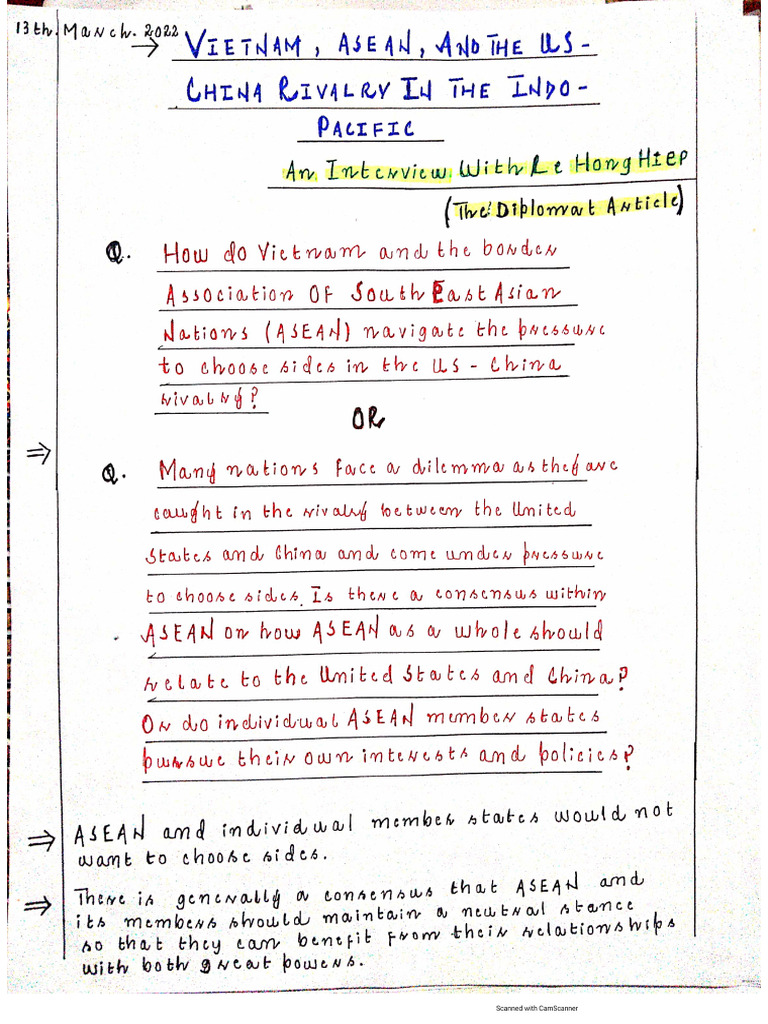 13th. March. 2022
→ VIETNAM, ASEAN, AND THE US-
CHINA RIVALRY IN THE INDO-
PACIFIC
An Interview With Le Hong Hiep
(The Diplomat Article)
Q. How do Vietnam and the border
Association Of South East Asian
Nations (ASEAN) navigate the pressure
to choose sides in the US - China
rivalry?
OR
⇒
Q. Many nations face a dilemma as they are
caught in the rivalry between the United
States and China and come under pressure
to choose sides. Is there a consensus within
ASEAN on how ASEAN as a whole should
relate to the United States and China?
Or do individual ASEAN member states
pursue their own interests and policies?
⇒ ASEAN and individual member states would not
want to choose sides.
⇒ There is generally a consensus that ASEAN and
its members should maintain a neutral stance
so that they can benefit from their relationships
with both great powers.
Scanned with CamScanner